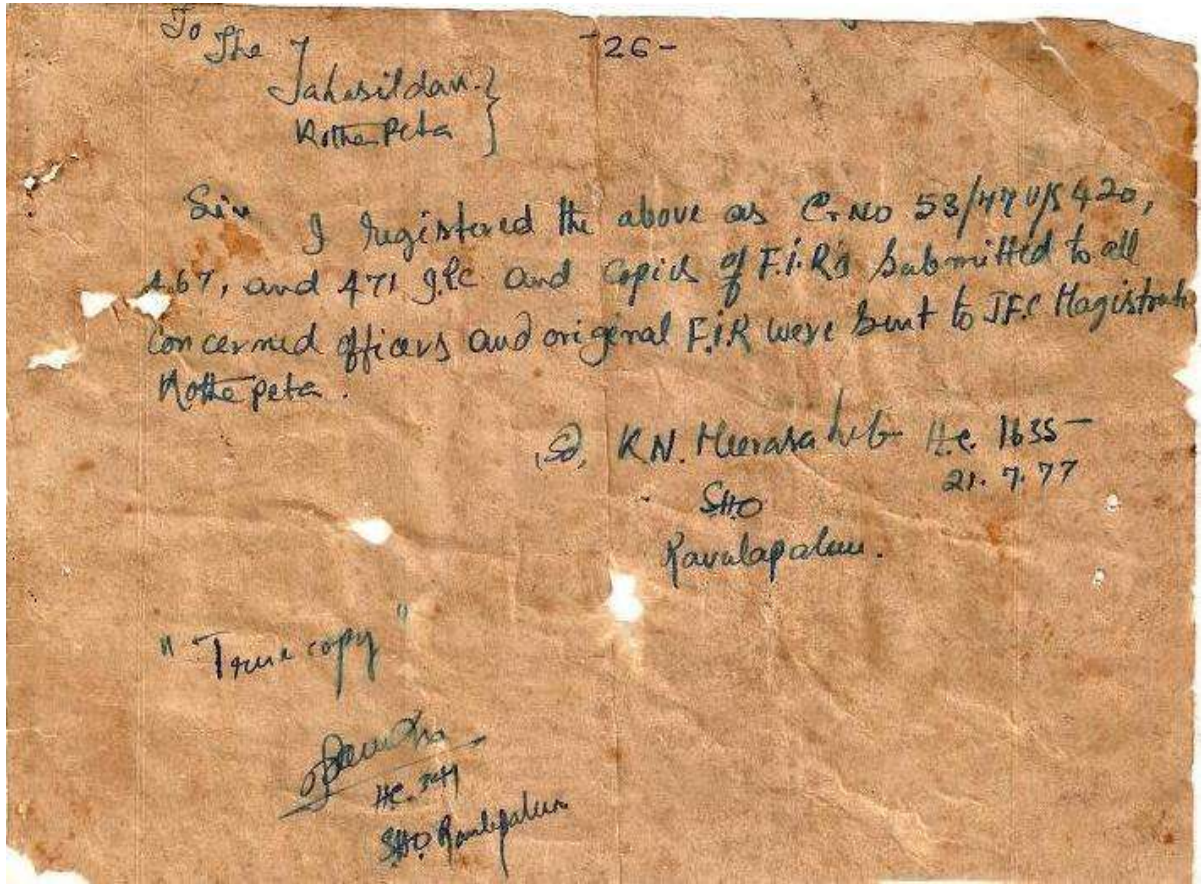 To The
-26-
Tahasildar }
Kothapeta }
Sir I registered the above as Cr. No 53/77 u/s 420,
467, and 471 I.P.C and copies of F.I.R's submitted to all
concerned officers and original F.I.R were sent to JFC Magistrate
Kothapeta.
Sd, K.N. Meerasaheb H.C. 1635
21.7.77
SHO
Ravulapalem.
"True copy"
HC.
SHO Ravulapalem